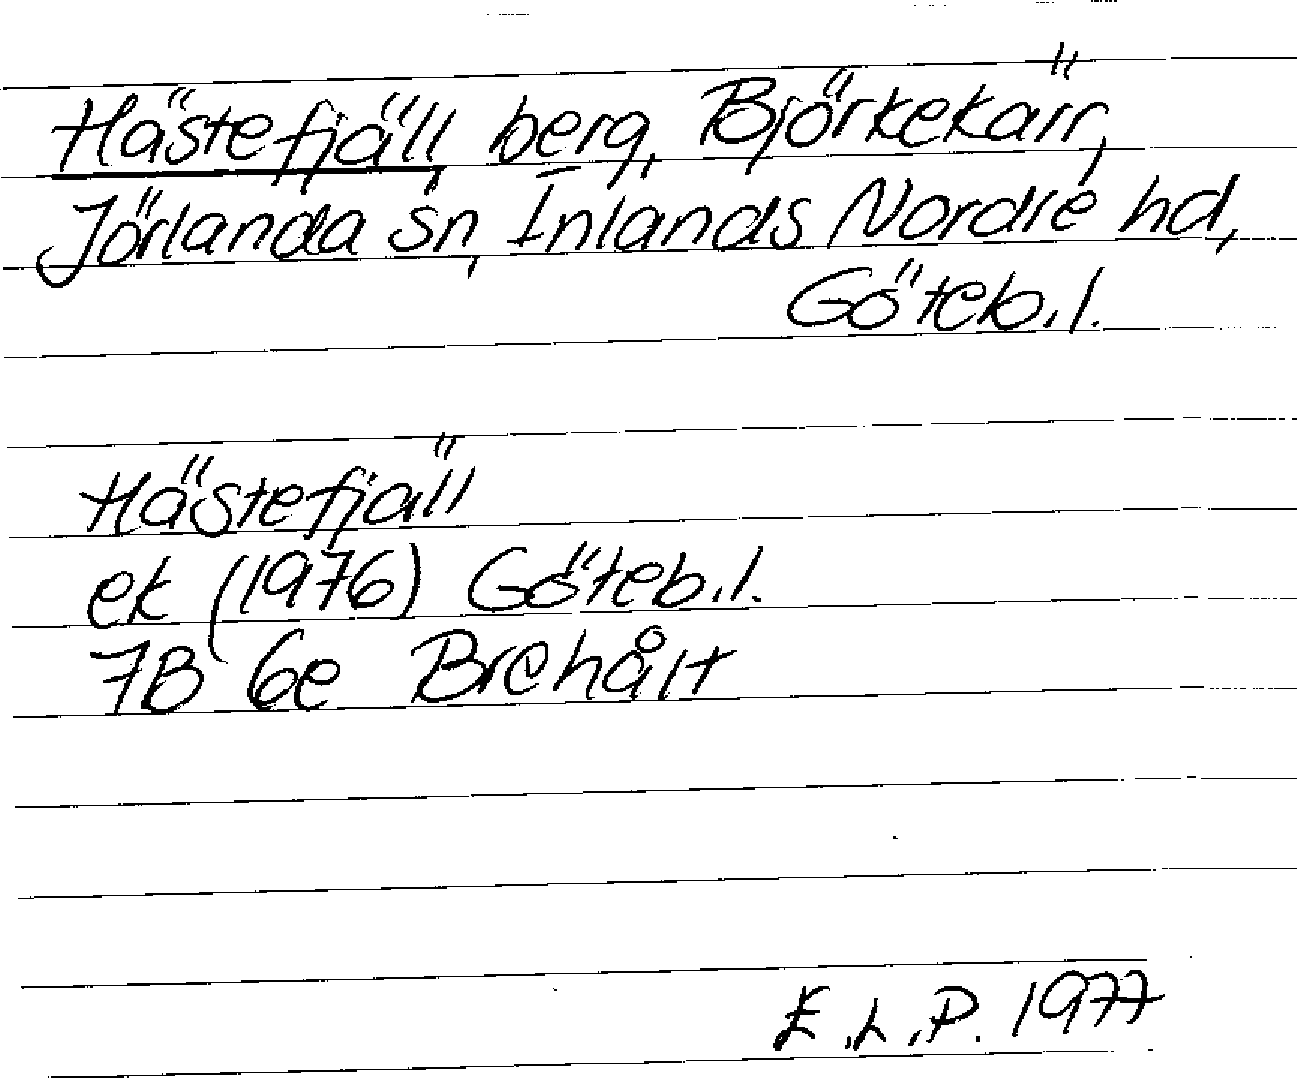 Hästefjäll, berg, Björkekärr,
Jörlanda sn, Inlands Nordre hd,
Göteb.l.
Hästefjäll
ek (1976) Göteb.l.
7B 6e Brehålt
E.L.P. 1977